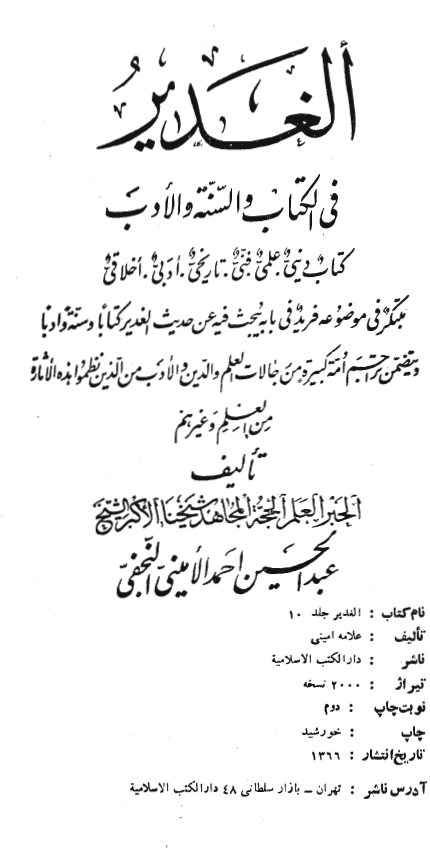 ألغدير
في الكتاب والسنة والأدب
كتاب ديني. علمي. فني. تاريخي. أدبي. أخلاقي
مبتكر في موضوعه فريد في بابه يبحث فيه عن حديث الغدير كتابا وسنة وأدبا
ويتضمن تراجم أمة كبيرة من رجالات العلم والدين والأدب من الذين نظموا هذه الأثارة
من العلم وغيرهم
تأليف
الحبر العلم الحجة المجاهد شيخنا الأكبر الشيخ
عبد الحسين احمد الأميني النجفي
نام کتاب : الغدیر جلد ۱۰
تألیف : علامه امینی
ناشر : دارالکتب الاسلامیة
تیراژ : ۲۰۰۰ نسخه
نوبت چاپ : دوم
چاپ : خورشید
تاریخ انتشار : ۱۳۶۶
آدرس ناشر : تهران – بازار سلطانی ۴۸ دارالکتب الاسلامیة